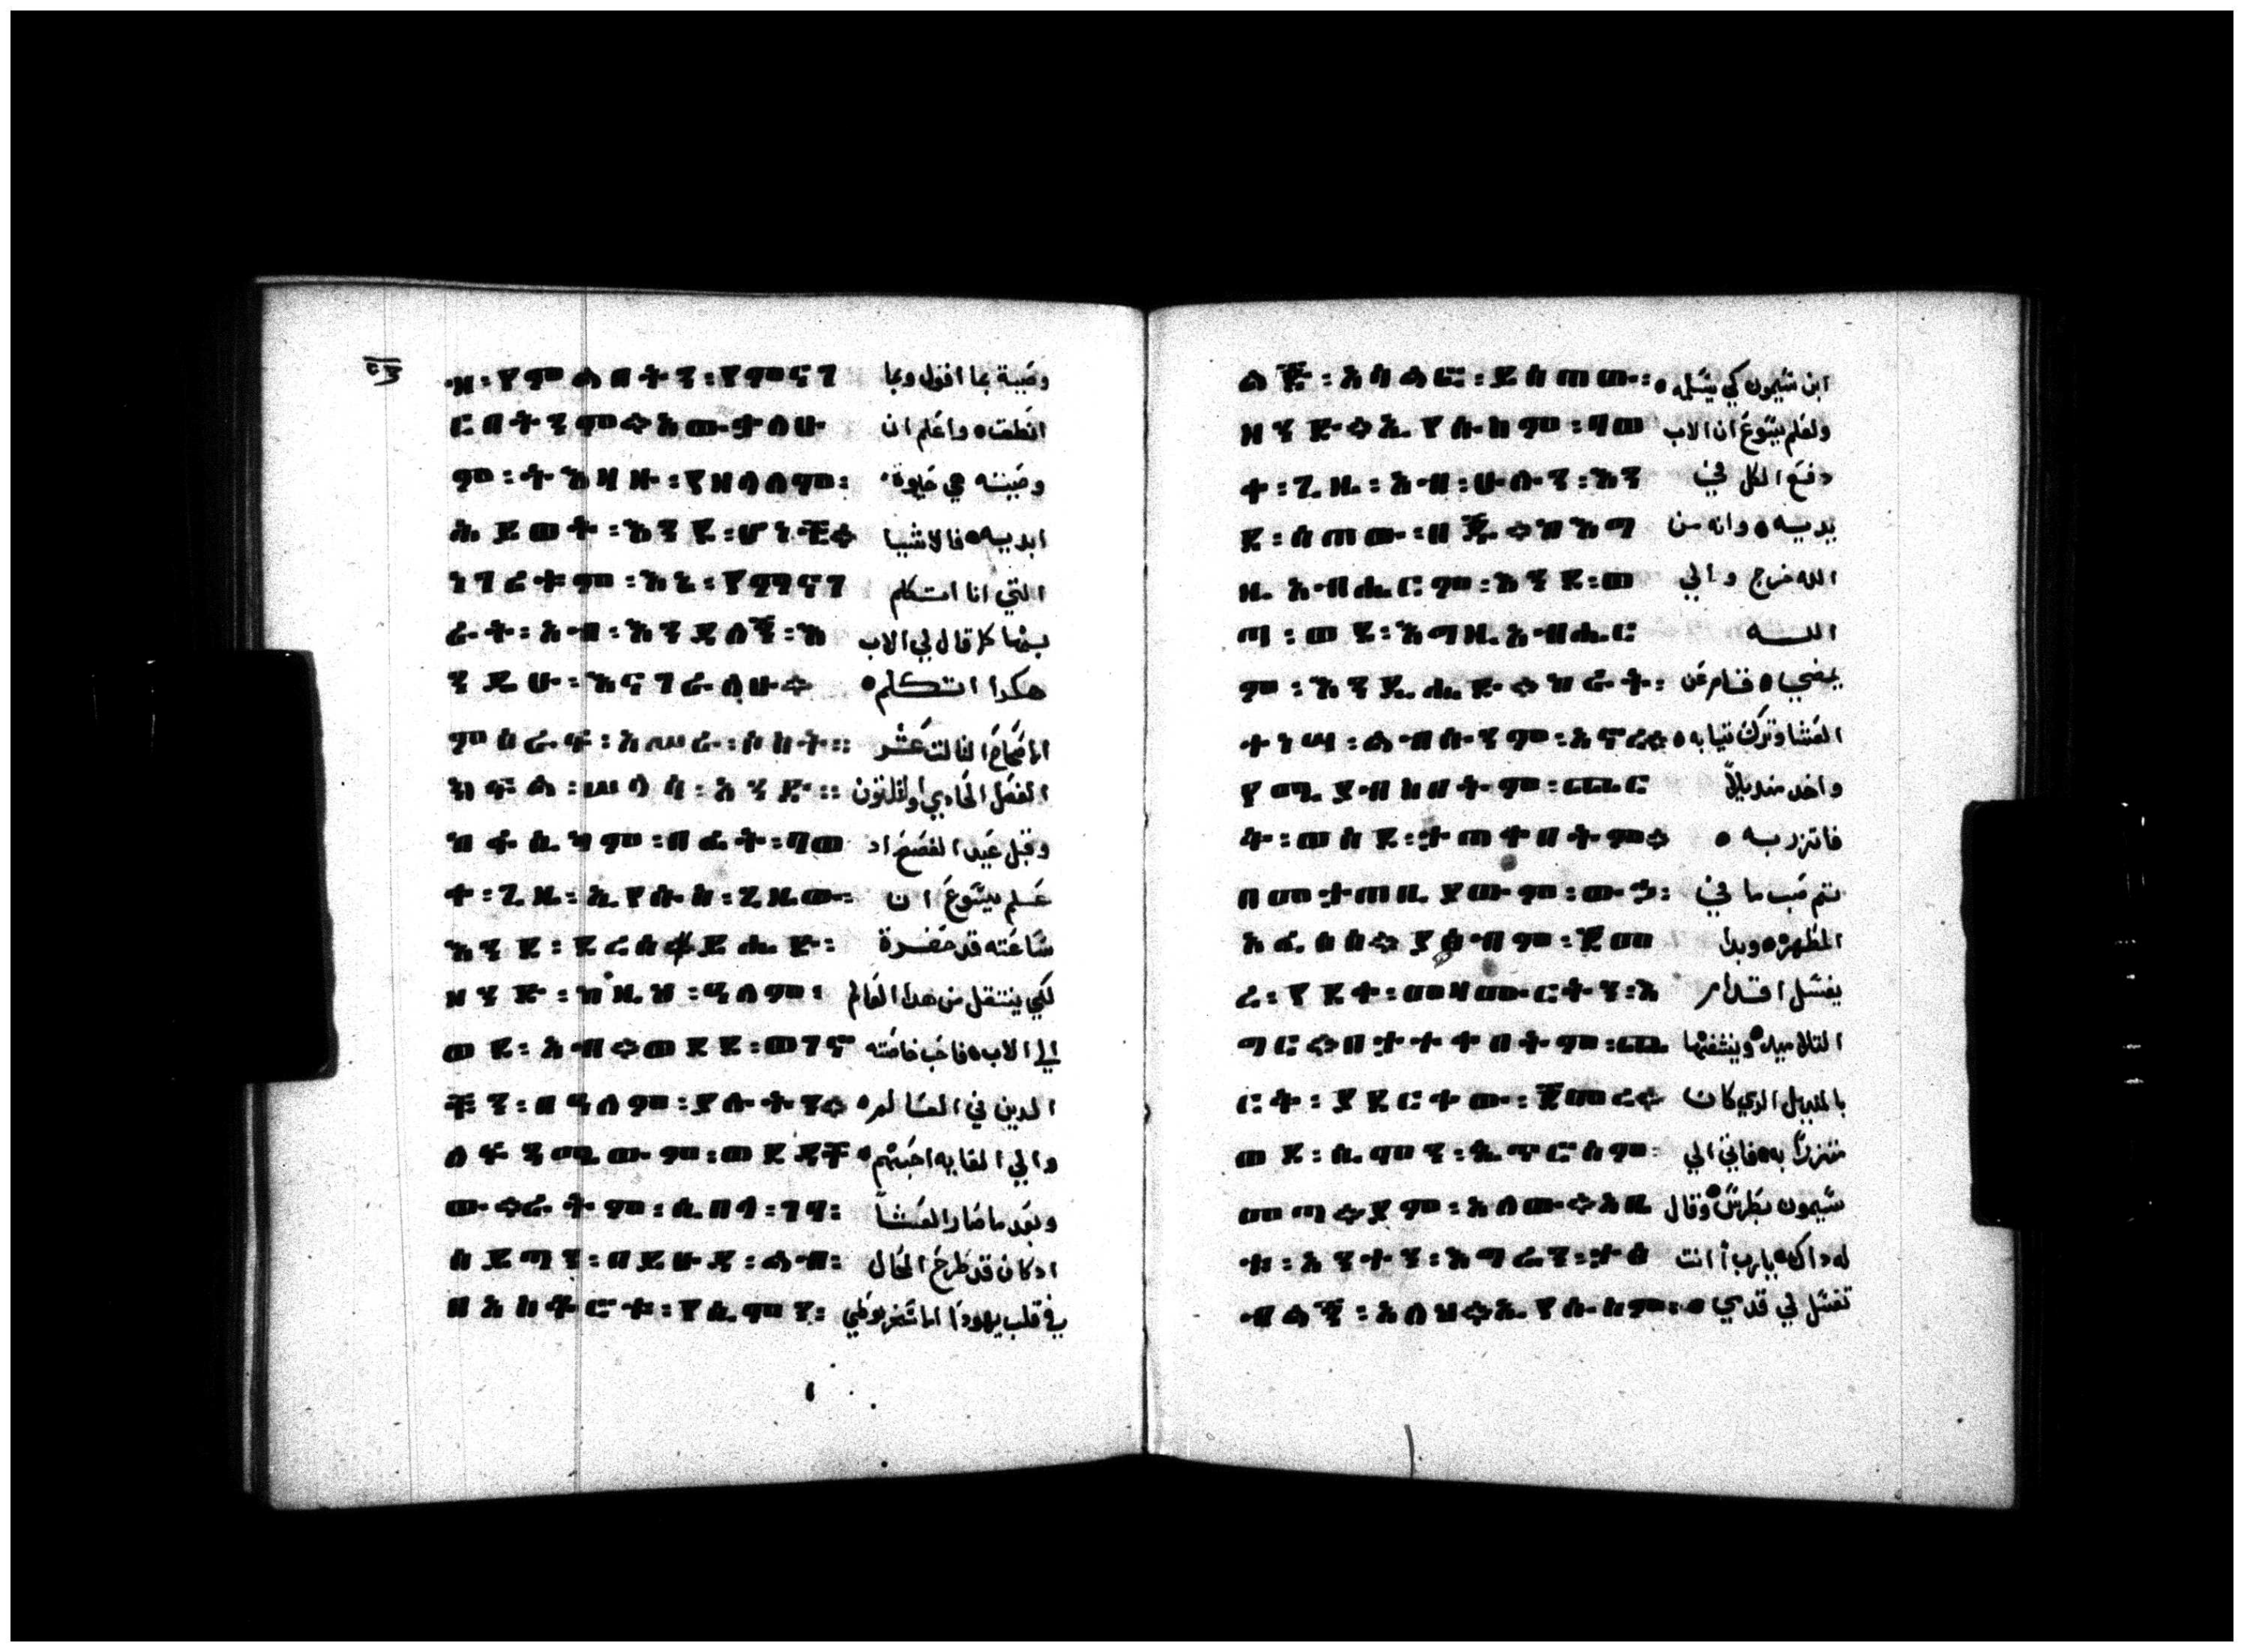 ዙ : የምልበትን : የምናገ وصية بما اقول وبما
ርበትንም። አውቃለሁ انطق، واعلم ان
ም : ትእዛዙ : የዘላለም : وصيته هي حياوة
ሕይወት : እንደ : ሆነች። ابديه فالاشيا
ነገሮቹም : እኔ : የምናገ التي انا اتكلم
ሩት : አብ : እንዳለኝ : እን بها كما قال لي الاب
ዲሁ : እናገራለሁ። هكدا اتكلم
ምዕራፍ : አሥራ : ሶስት ። الاصحاح التالت عشر
ክፍል : ሠላሳ : አንድ ። الفصل الحادي وتلتون
ከፋሲካም : በፊት : ባወ وقبل عيد الفصح اد
ቀ : ጊዜ : ኢየሱስ : ጊዜው : علم يسوع ان
እንደ : ደረሰ ይሔድ : ساعته قد حضرة
ዘንድ : ከዚህ : ዓለም : لكي ينتقل من هدا العالم
ወደ : አብ። ወደደ : ወገኖ الي الاب فاحب خاصته
ቹን : በዓለም : ያሉትን። الدين في العالم
ለፍጻሜውም : ወደዳቸ والي الغايه احبهم
ው። ራትም : ሲበላ : ገባ : وبعد ما صار العشا
ሰይጣን : በይሁዳ : ልብ : ادكان قد طرح المحال
በአስቆሮቱ : የሲሞን : في قلب يهودا الاسخريوطي
ልጅ : አሳልፎ : ይሰጠው : ابن شيمون كي يسلمه
ዘንድ። ኢየሱስም : ባወ ولعلم يسوع ان الاب
ቀ : ጊዜ : አብ : ሁሉን : እን دفع الكل في
ደ : ሰጠው : በእጁ። ከእግ يديه وانه من
ዚአብሔርም : እንደ : ወ الله خرج والي
ጣ : ወደ : እግዚአብሔር الله
ም : እንዲሔድ። ከራት : يمضي فقام عن
ተነሣ : ልብሱንም : አኖረ። العشا وترك تيابه
የሚያብስበትም : ጨር واخد منديلاً
ቅ : ወሰደ : ታጠቀበትም። فاتزر به
በመታጠቢያውም : ውኃ : تم صب ما في
አፈሰሰ። ያጥብም : ጀመ المطهره وبدا
ረ : የደቀ : መዛሙርቱን : እ يغسل اقدام
ግር። በታጠቀበትም : ጨ التلاميد وينشفها
ርቅ : ያደርቀው : ጀመረ። بالمنديل الدي كان
ወደ : ሲሞን : ጴጥሮስም : متزراً به فاتي الي
መጣ። ያም : አለው። አቤ شيمون بطرس وقال
ቱ : አንተን : እግሬን : ታጥ له داك يارب أانت
ብልኝ : አለህ። ኢየሱስም : تغسل لي قدمي